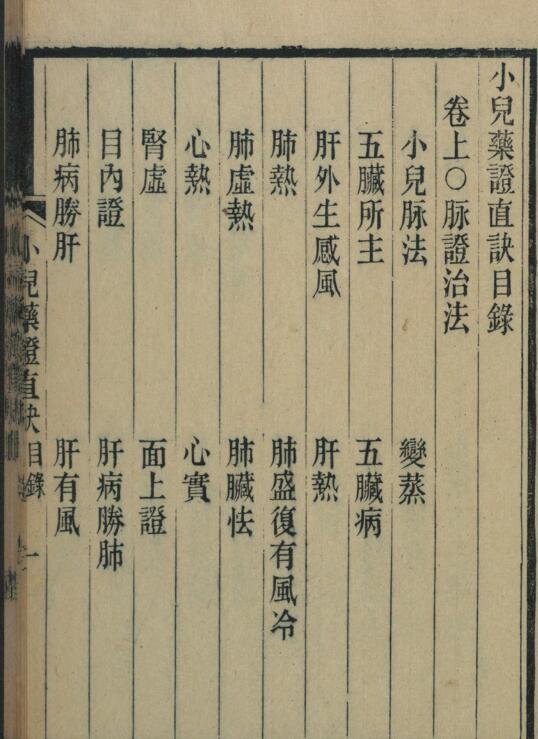 小兒藥證直訣目錄
卷上〇脉證治法
小兒脉法 變蒸
五臟所主 五臟病
肝外生感風 肝熱
肺熱 肺盛復有風冷
肺虛熱 肺臟怯
心熱 心實
腎虛 面上證
目內證 肝病勝肺
肺病勝肝 肝有風
小兒藥證直訣 目錄 一